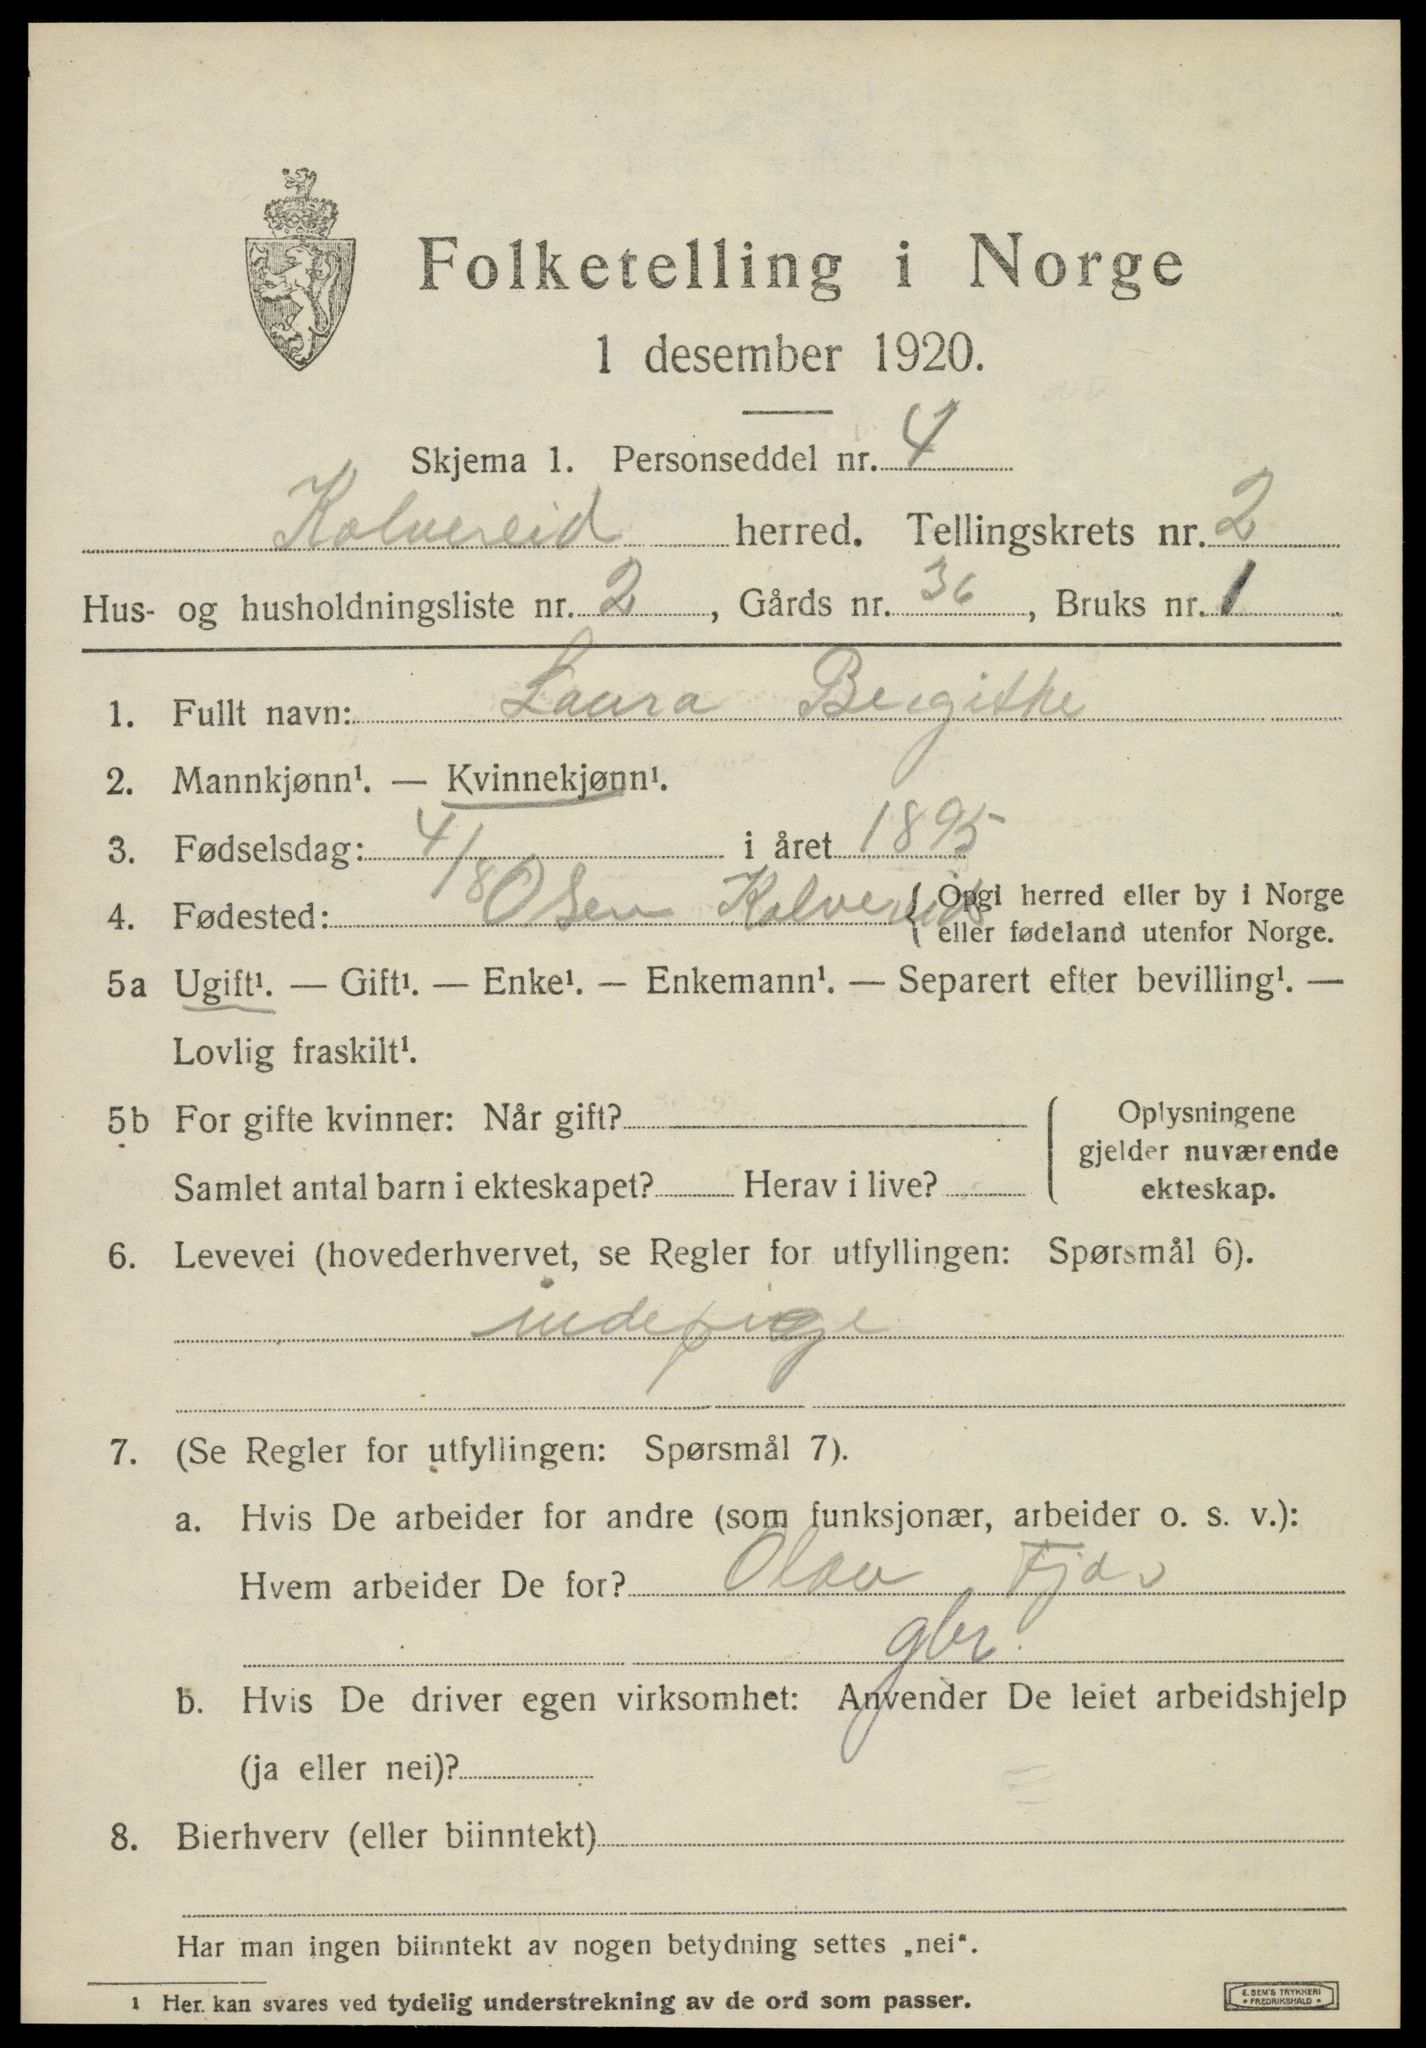 Folketelling i Norge
1 desember 1920.
Skjema 1. Personseddel nr. 4
Kolvereid herred. Tellingskrets nr. 2
Hus- og husholdningsliste nr. 2, Gårds nr. 36, Bruks nr. 1
1. Fullt navn: Laura Bergithe
2. Mannkjønn¹. — Kvinnekjønn¹.
3. Fødselsdag: 4/8 i året 1895
4. Fødested: Osen Kolvereid { Opgi herred eller by i Norge
eller fødeland utenfor Norge.
5a Ugift¹. — Gift¹. — Enke¹. — Enkemann¹. — Separert efter bevilling¹. —
Lovlig fraskilt¹.
5b For gifte kvinner: Når gift?
Samlet antal barn i ekteskapet? Herav i live?
Oplysningene
gjelder nuværende
ekteskap.
6. Levevei (hovederhvervet, se Regler for utfyllingen: Spørsmål 6).
indepige
7. (Se Regler for utfyllingen: Spørsmål 7).
a. Hvis De arbeider for andre (som funksjonær, arbeider o. s. v.):
Hvem arbeider De for? Olav
gbr.
b. Hvis De driver egen virksomhet: Anvender De leiet arbeidshjelp
(ja eller nei)?
8. Bierhverv (eller biinntekt)
Har man ingen biinntekt av nogen betydning settes „nei“.
1 Her kan svares ved tydelig understrekning av de ord som passer.
E. SEM'S TRYKKERI
• FREDRIKSHALD •